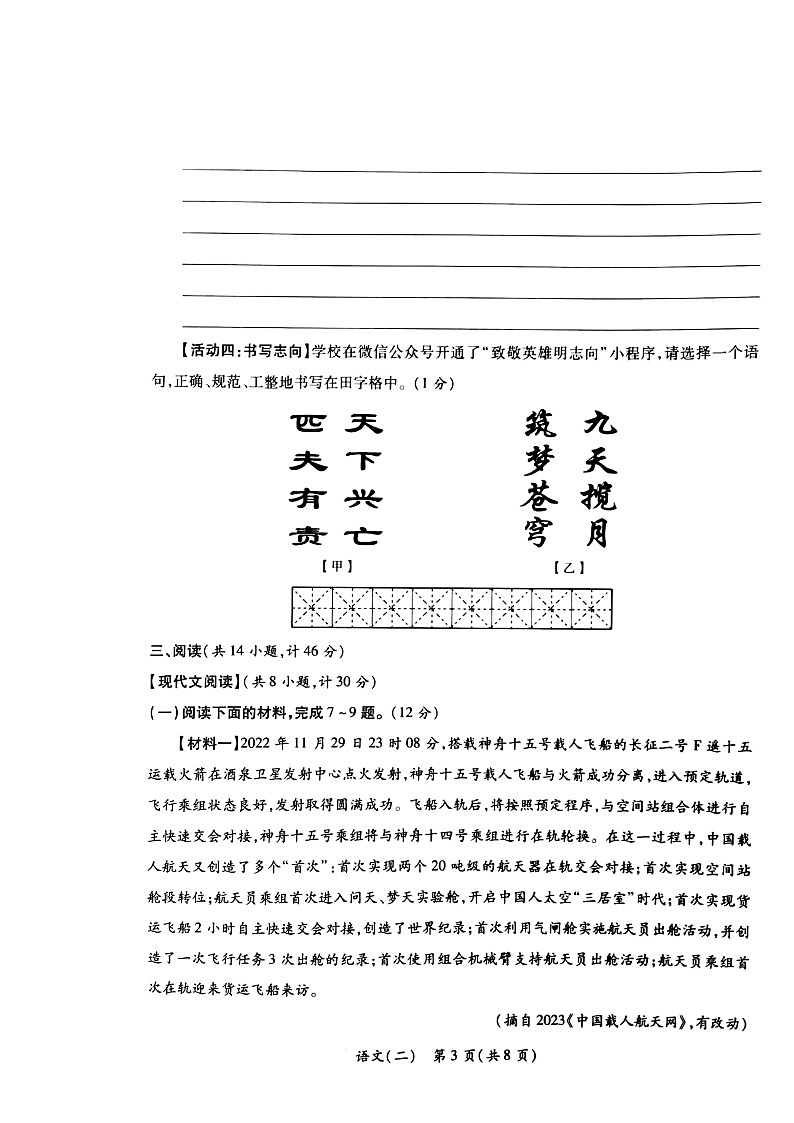 【活动四:书写志向】学校在微信公众号开通了“致敬英雄明志向”小程序,请选择一个语
句,正确、规范、工整地书写在田字格中。(1 分)
天下兴亡
匹夫有责
【甲】
九天揽月
筑梦苍穹
【乙】
三、阅读(共 14 小题,计 46 分)
【现代文阅读】(共 8 小题,计 30 分)
(一)阅读下面的材料,完成 7 ~ 9 题。(12 分)
【材料一】2022 年 11 月 29 日 23 时 08 分,搭载神舟十五号载人飞船的长征二号 F 遥十五
运载火箭在酒泉卫星发射中心点火发射,神舟十五号载人飞船与火箭成功分离,进入预定轨道,
飞行乘组状态良好,发射取得圆满成功。飞船入轨后,将按照预定程序,与空间站组合体进行自
主快速交会对接,神舟十五号乘组将与神舟十四号乘组进行在轨轮换。在这一过程中,中国载
人航天又创造了多个“首次”:首次实现两个 20 吨级的航天器在轨交会对接;首次实现空间站
舱段转位;航天员乘组首次进入问天、梦天实验舱,开启中国人太空“三居室”时代;首次实现货
运飞船 2 小时自主快速交会对接,创造了世界纪录;首次利用气闸舱实施航天员出舱活动,并创
造了一次飞行任务 3 次出舱的纪录;首次使用组合机械臂支持航天员出舱活动;航天员乘组首
次在轨迎来货运飞船来访。
(摘自 2023《中国载人航天网》,有改动)
语文(二) 第 3 页(共 8 页)